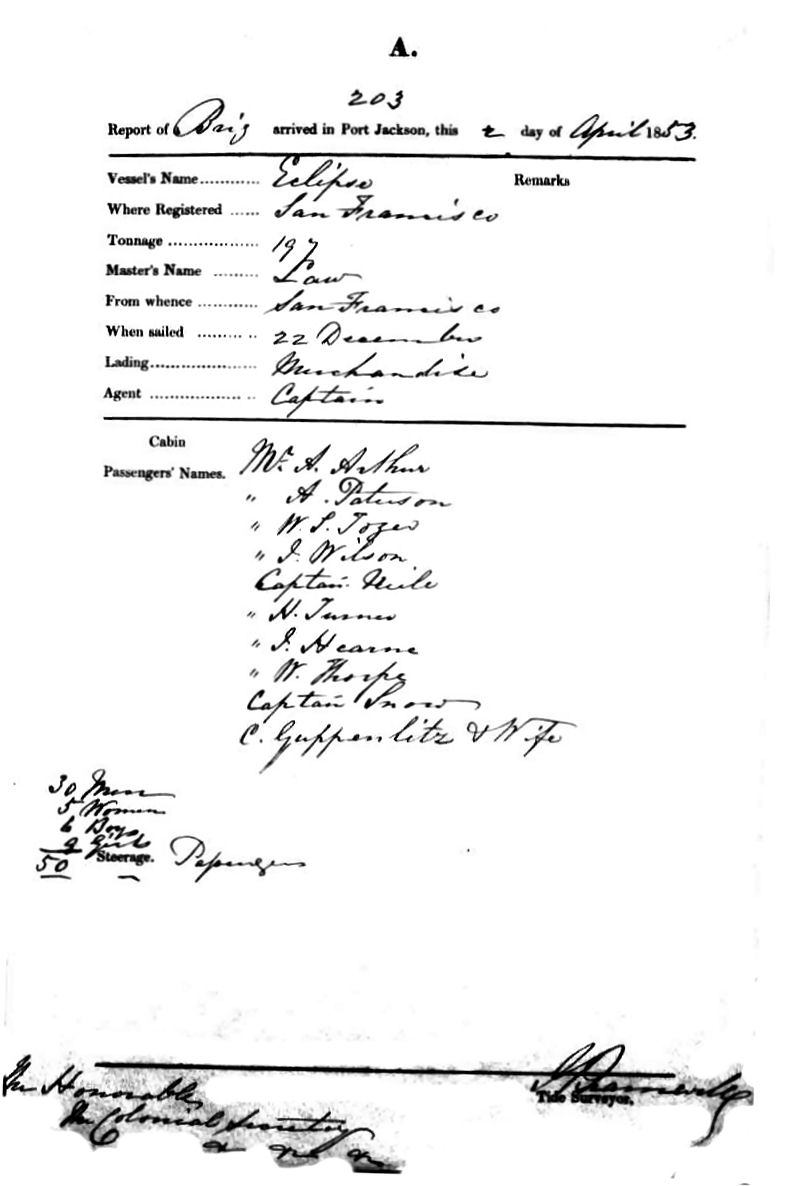 A.
203
Report of Brig arrived in Port Jackson, this 2 day of April 1853.
Vessel's Name............ Eclipse Remarks
Where Registered ...... San Francisco
Tonnage .................. 197
Master's Name ......... Law
From whence ............ San Francisco
When sailed ......... .. 22 December
Lading..................... Merchandise
Agent .................. .. Captain
Cabin
Passengers' Names. Mr. A. Arthur
" A. Paterson
" W. S. Tozer
" J. Wilson
Captain Neile
" H. Turner
" J. Hearne
" W. Thorpe
Captain Snow
C. Guppenlitz & Wife
30 Men
5 Women
6 Boys
9 Girls
50 Steerage. Passengers
The Honorable
The Colonial Secretary
Tide Surveyor.